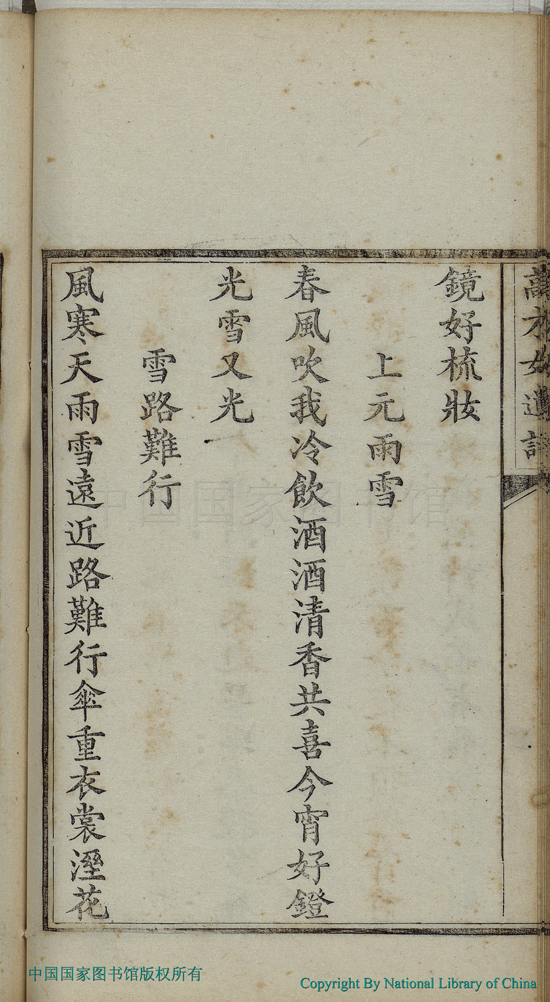 鏡好梳妝
上元雨雪
春風吹我冷飲酒酒清香共喜今宵好鐙
光雪又光
雪路難行
風寒天雨雪遠近路難行傘重衣裳溼花
中国国家图书馆
中国国家图书馆版权所有
Copyright By National Library of China